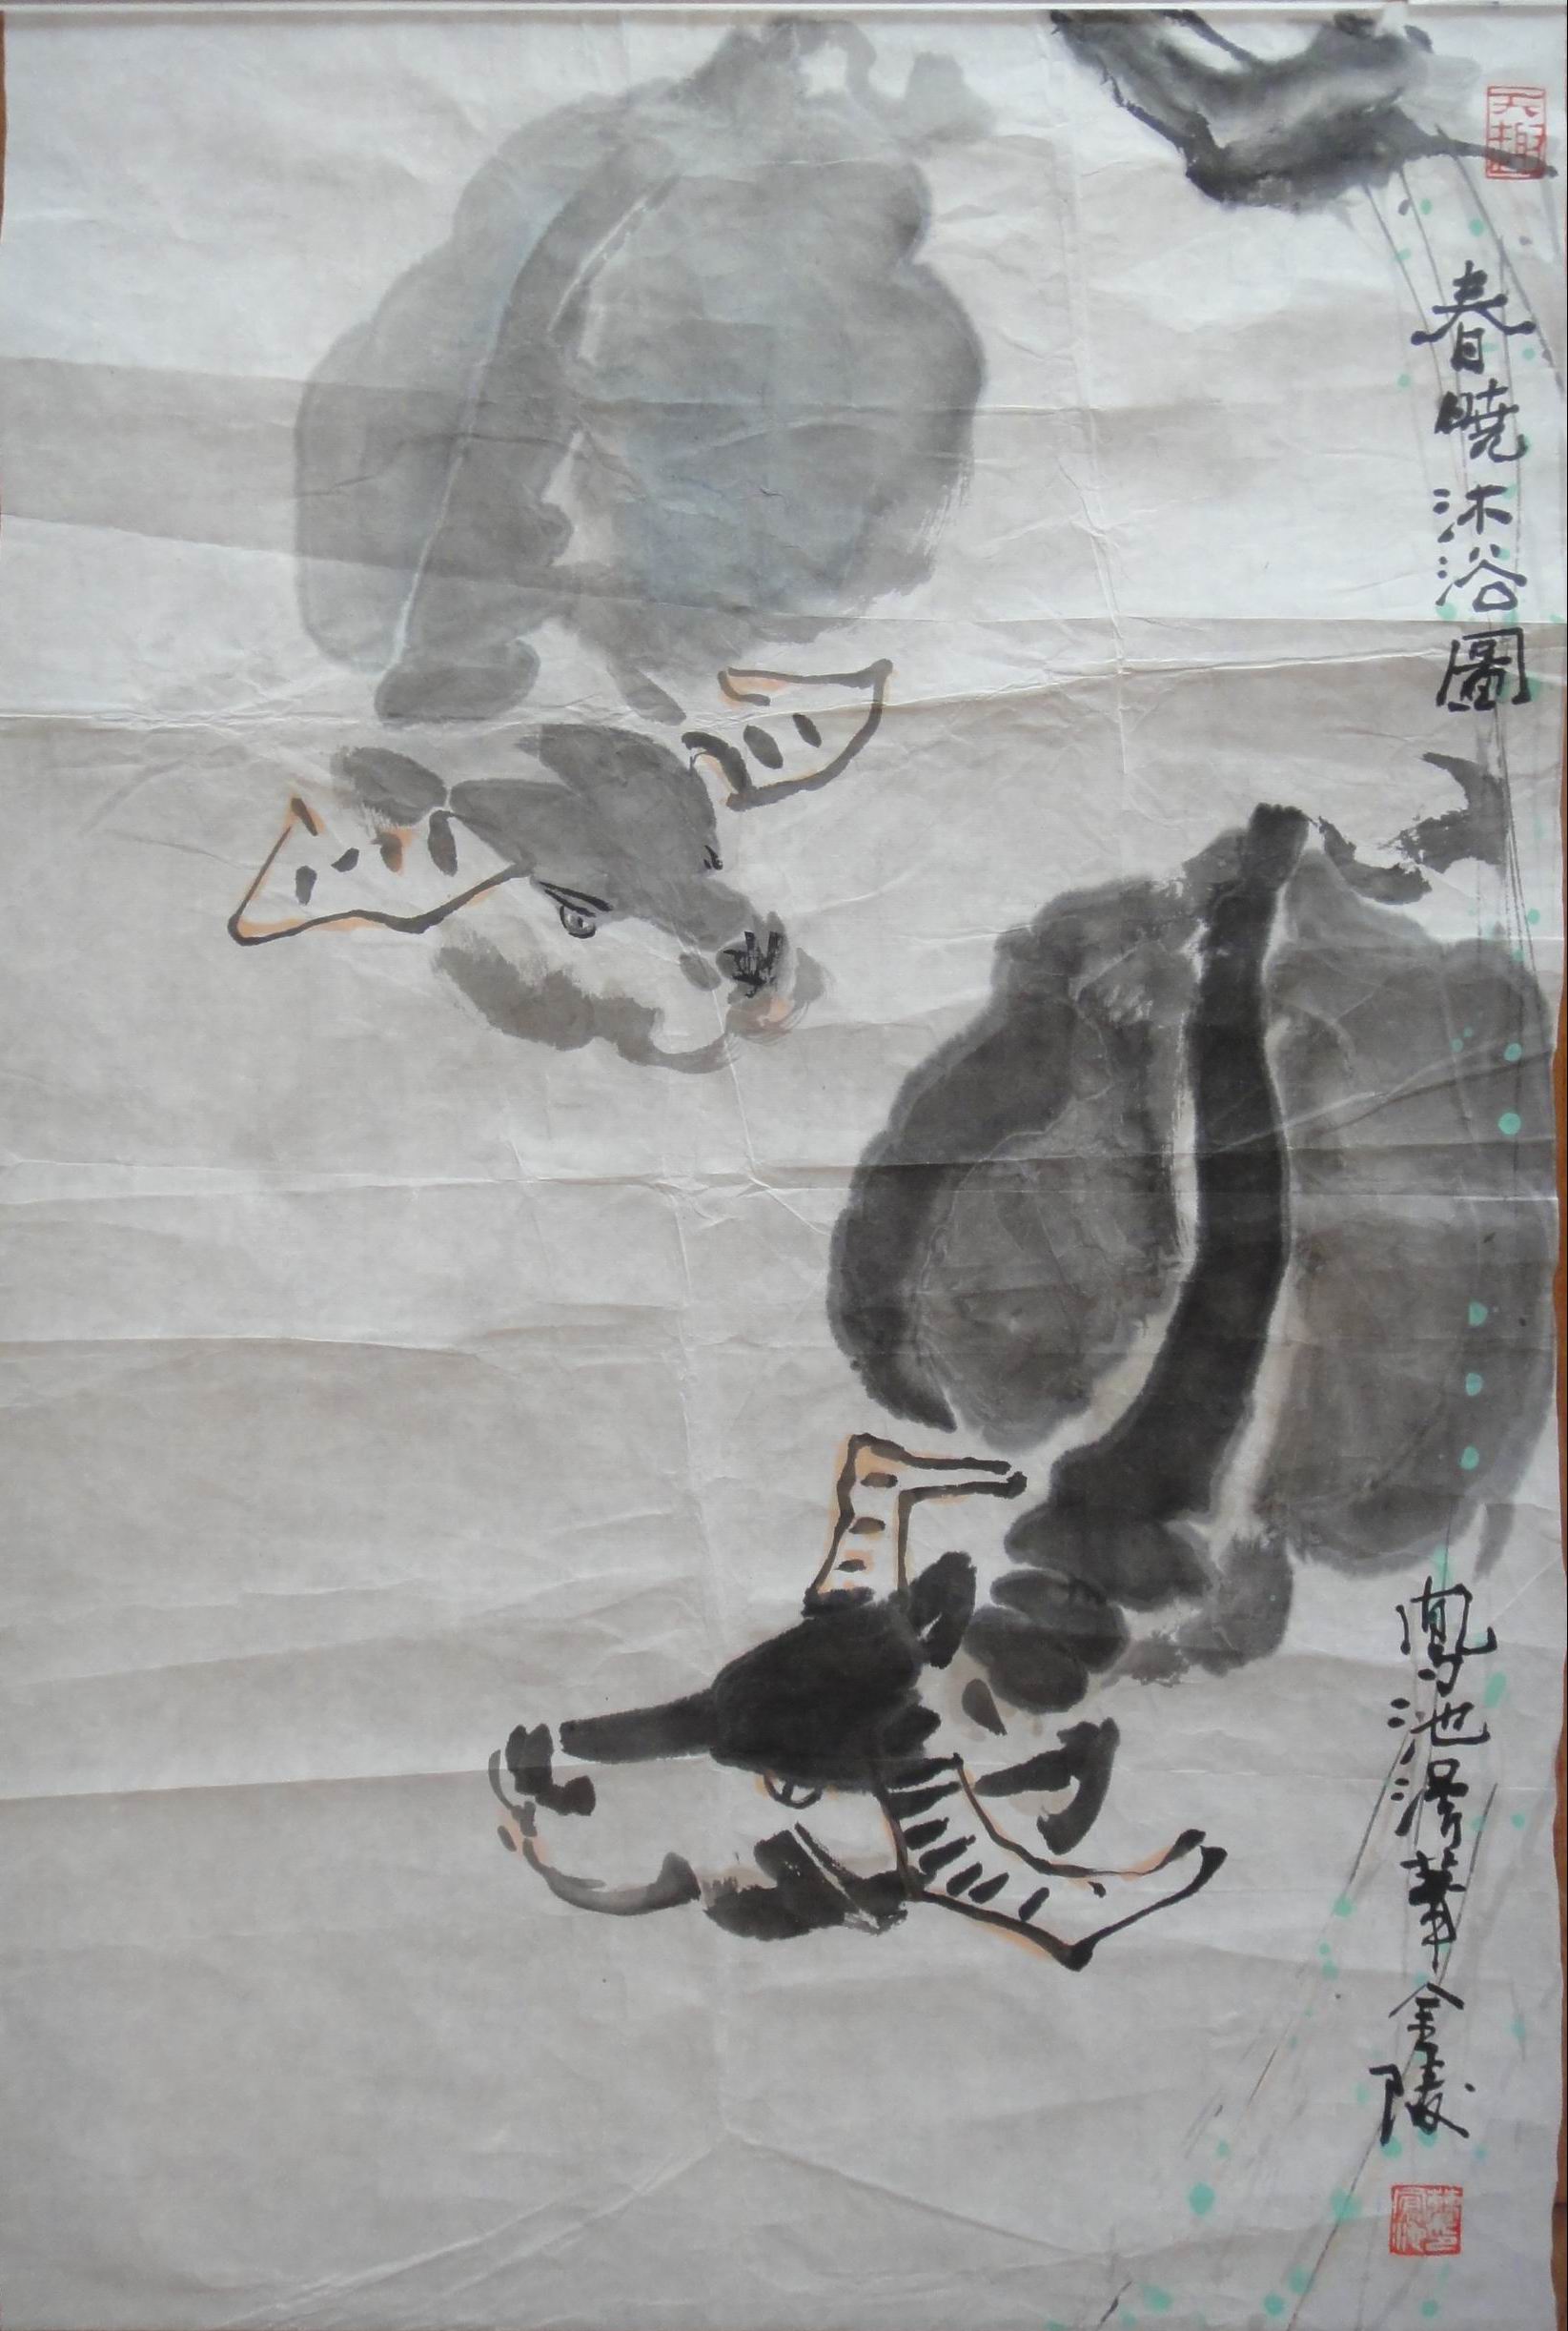 天趣
春曉沐浴圖
鳳池濡筆金陵